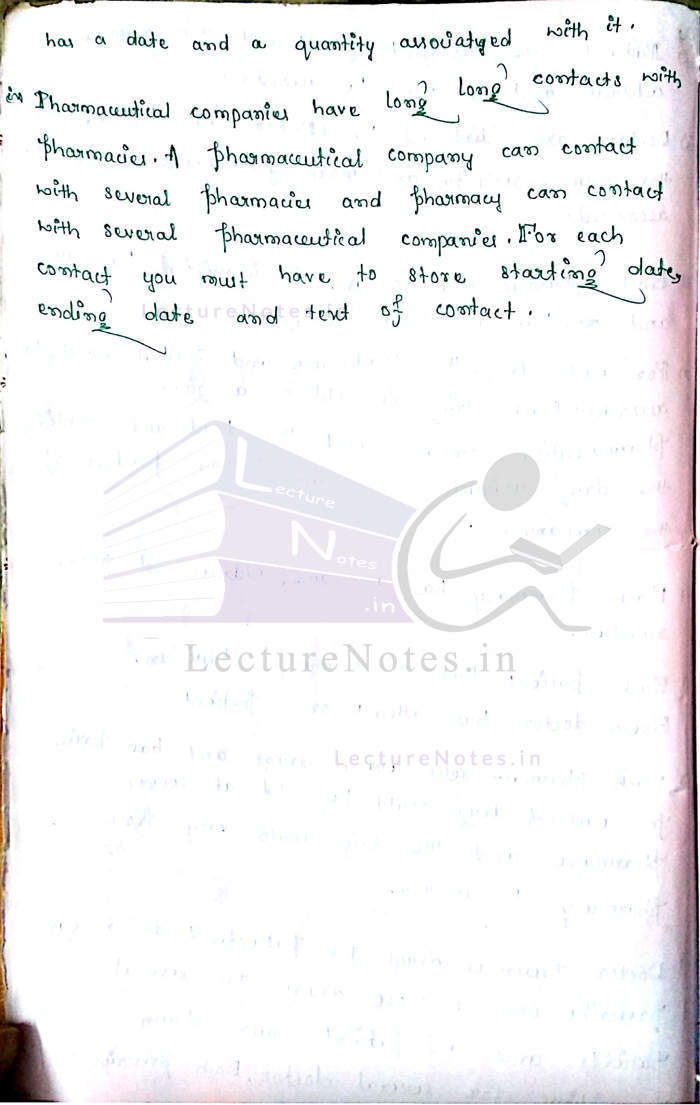 has a date and a quantity associatyed with it.
Pharmaceutical companies have long long contacts with
pharmacies. A pharmaceutical company can contact
with several pharmacies and pharmacy can contact
with several pharmaceutical companies. For each
contact you must have to store starting date,
ending date and text of contact.
LectureNotes.in
Lecture
Notes
.in
LectureNotes.in
LectureNotes.in